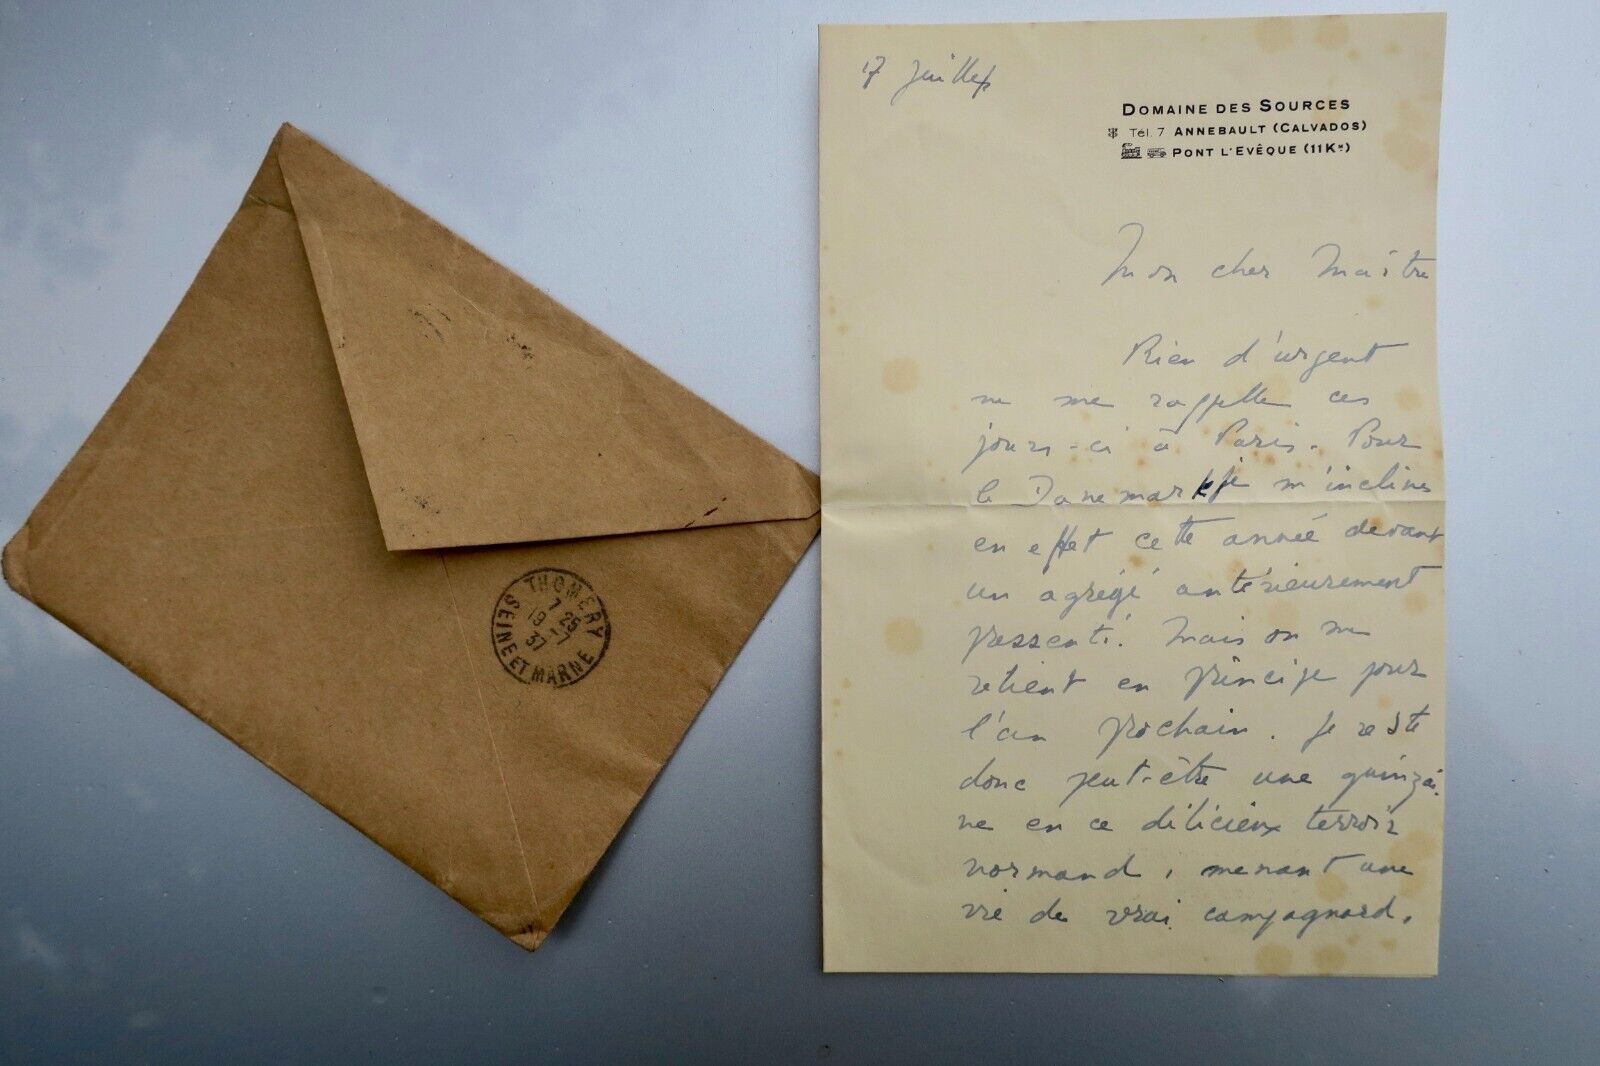 17 Juillet
DOMAINE DES SOURCES
Tél. 7 ANNEBAULT (CALVADOS)
PONT L'EVÊQUE (11Km)
Mon cher Maître
Rien d'urgent
ne me rappelle ces
jours-ci à Paris. Pour
le Danemark je m'inclines
en effet cette année devant
un agrégé antérieurement
pressenti. Mais on me
retient en principe pour
l'an prochain. Je reste
donc peut-être une quinzai-
ne en ce délicieux terroir
normand, menant une
vie de vrai campagnard.
THOMERY
7 25
19 -7
37
SEINE ET MARNE